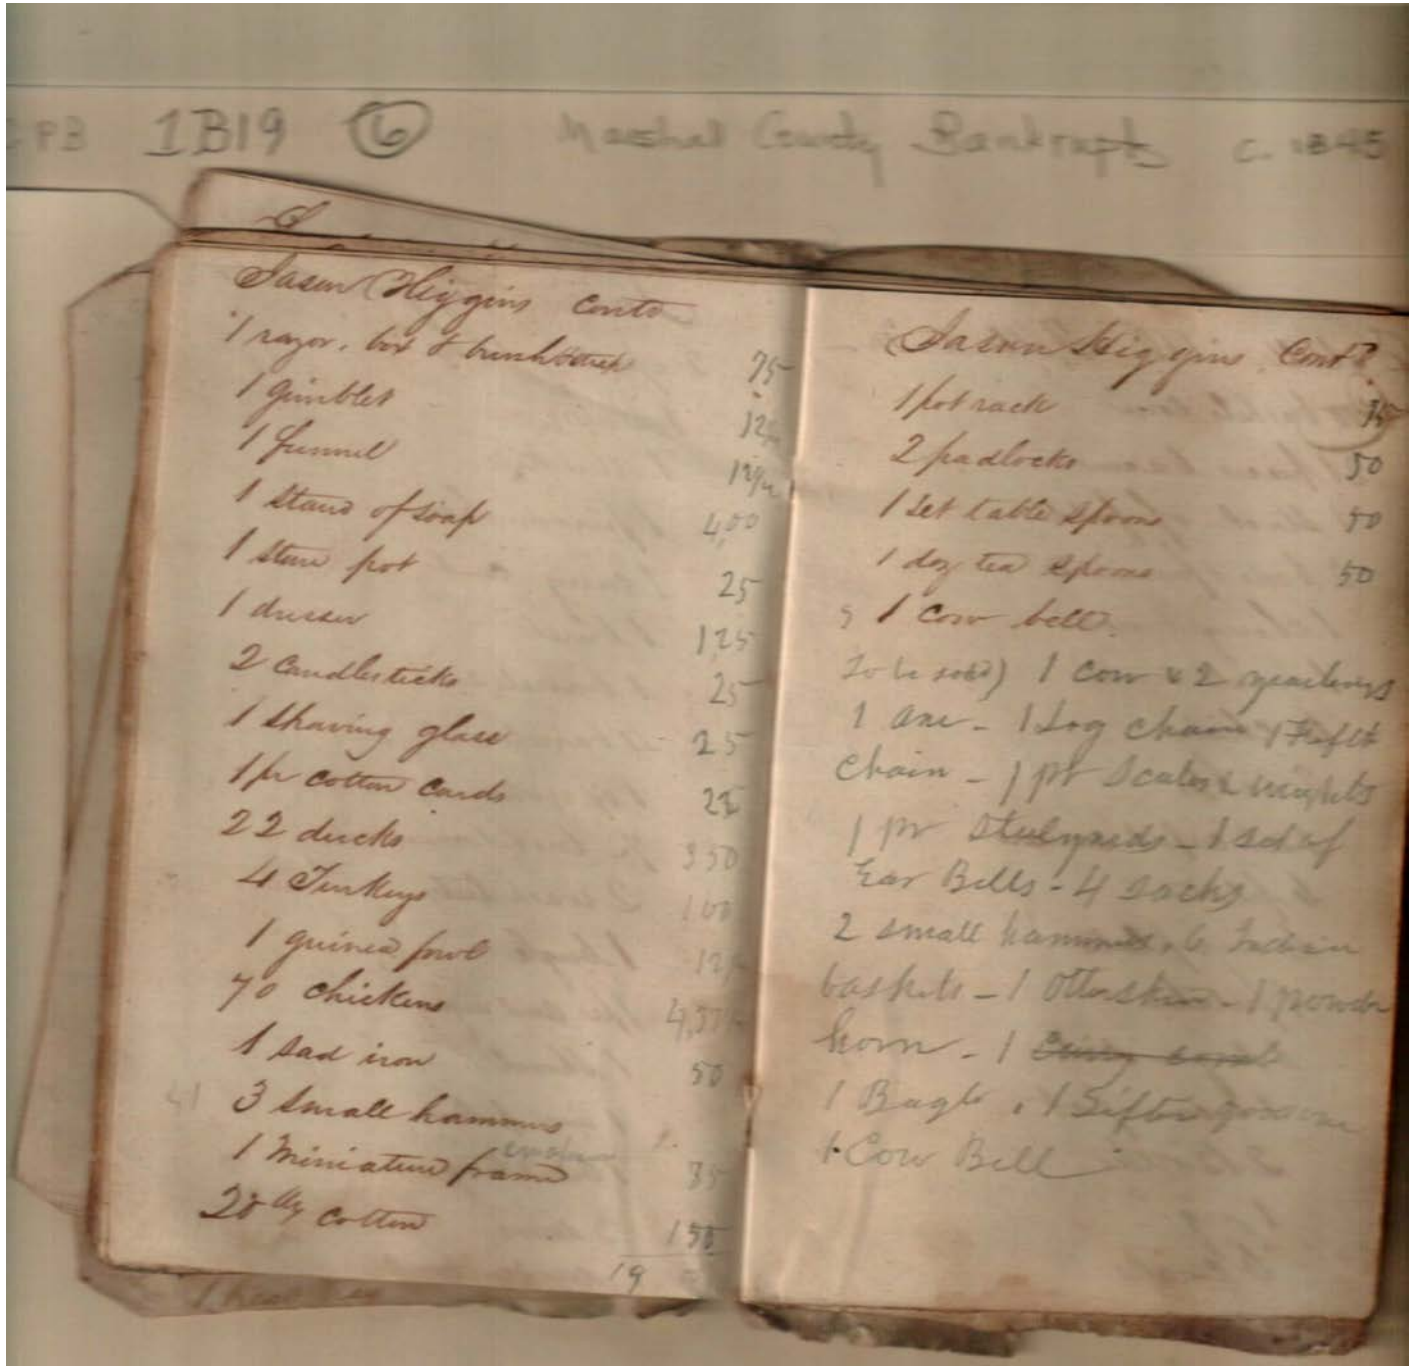 1B19 6 Marshal County Bankrupts C. 1845
Jason Higgins Contd
1 razor, box & brush 75
1 gimblet 12½
1 funnel 12½
1 stand of soap 4,00
1 stone pot 25
1 dresser 1,25
2 candlesticks 25
1 shaving glass 25
1 pr cotton cards 25
22 ducks 350
4 Turkeys 100
1 guinea fowl 12½
70 chickens
1 sad iron 50
3 small hammers
1 miniature frame
cotton 150
19
Jason Higgins Contd
1 pot rack
2 padlocks 50
1 set table spoons 50
1 doz tea spoons 50
1 cow bell.
To be sold) 1 cow & 2 yearlings
1 axe - 1 Log chain 1
chain - 1 pr Scales & weights
1 pr Stulyards - 1 set of
Ear Bells - 4 sacks
2 small hammers, 6 Indian
baskets - 1 Otter skin - 1 powder
horn - 1
1 Bugle, 1 Sifter
1 Cow Bell